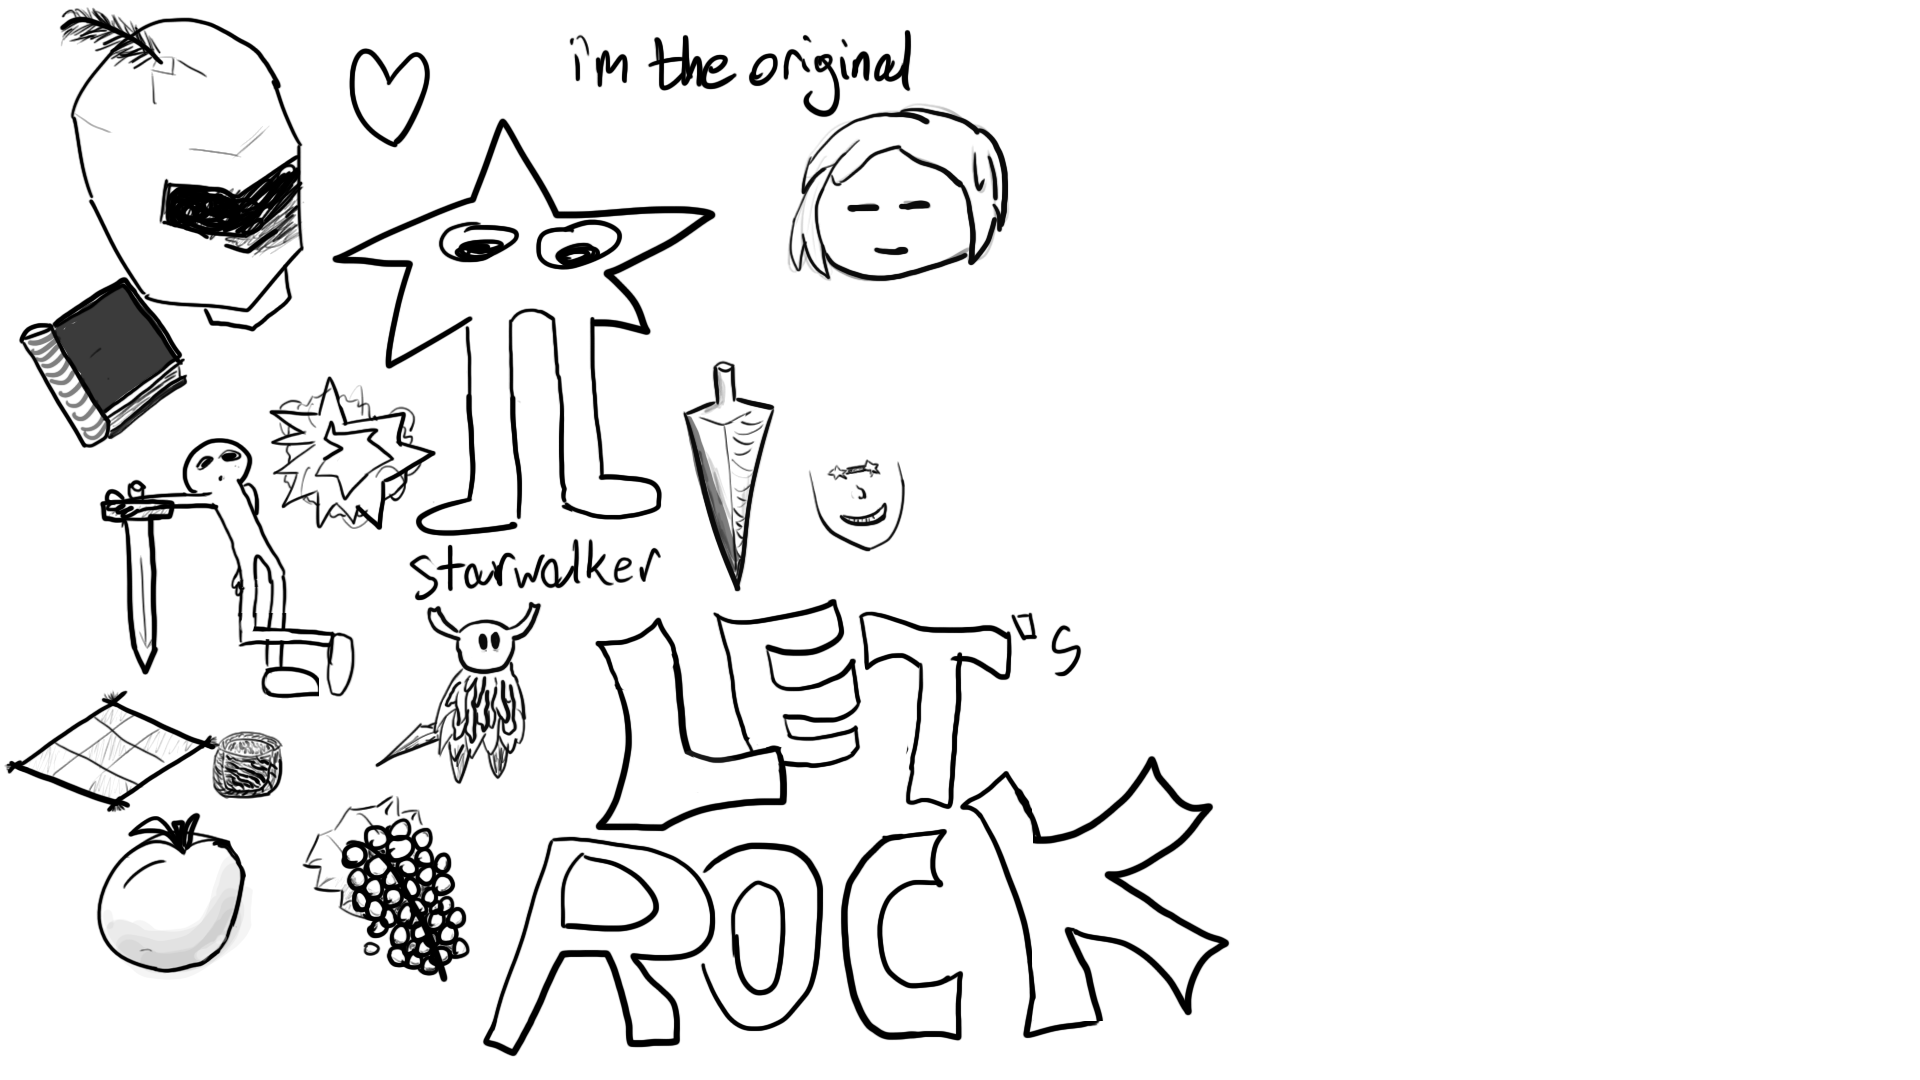 i'm the original
starwalker
LET's
ROCK